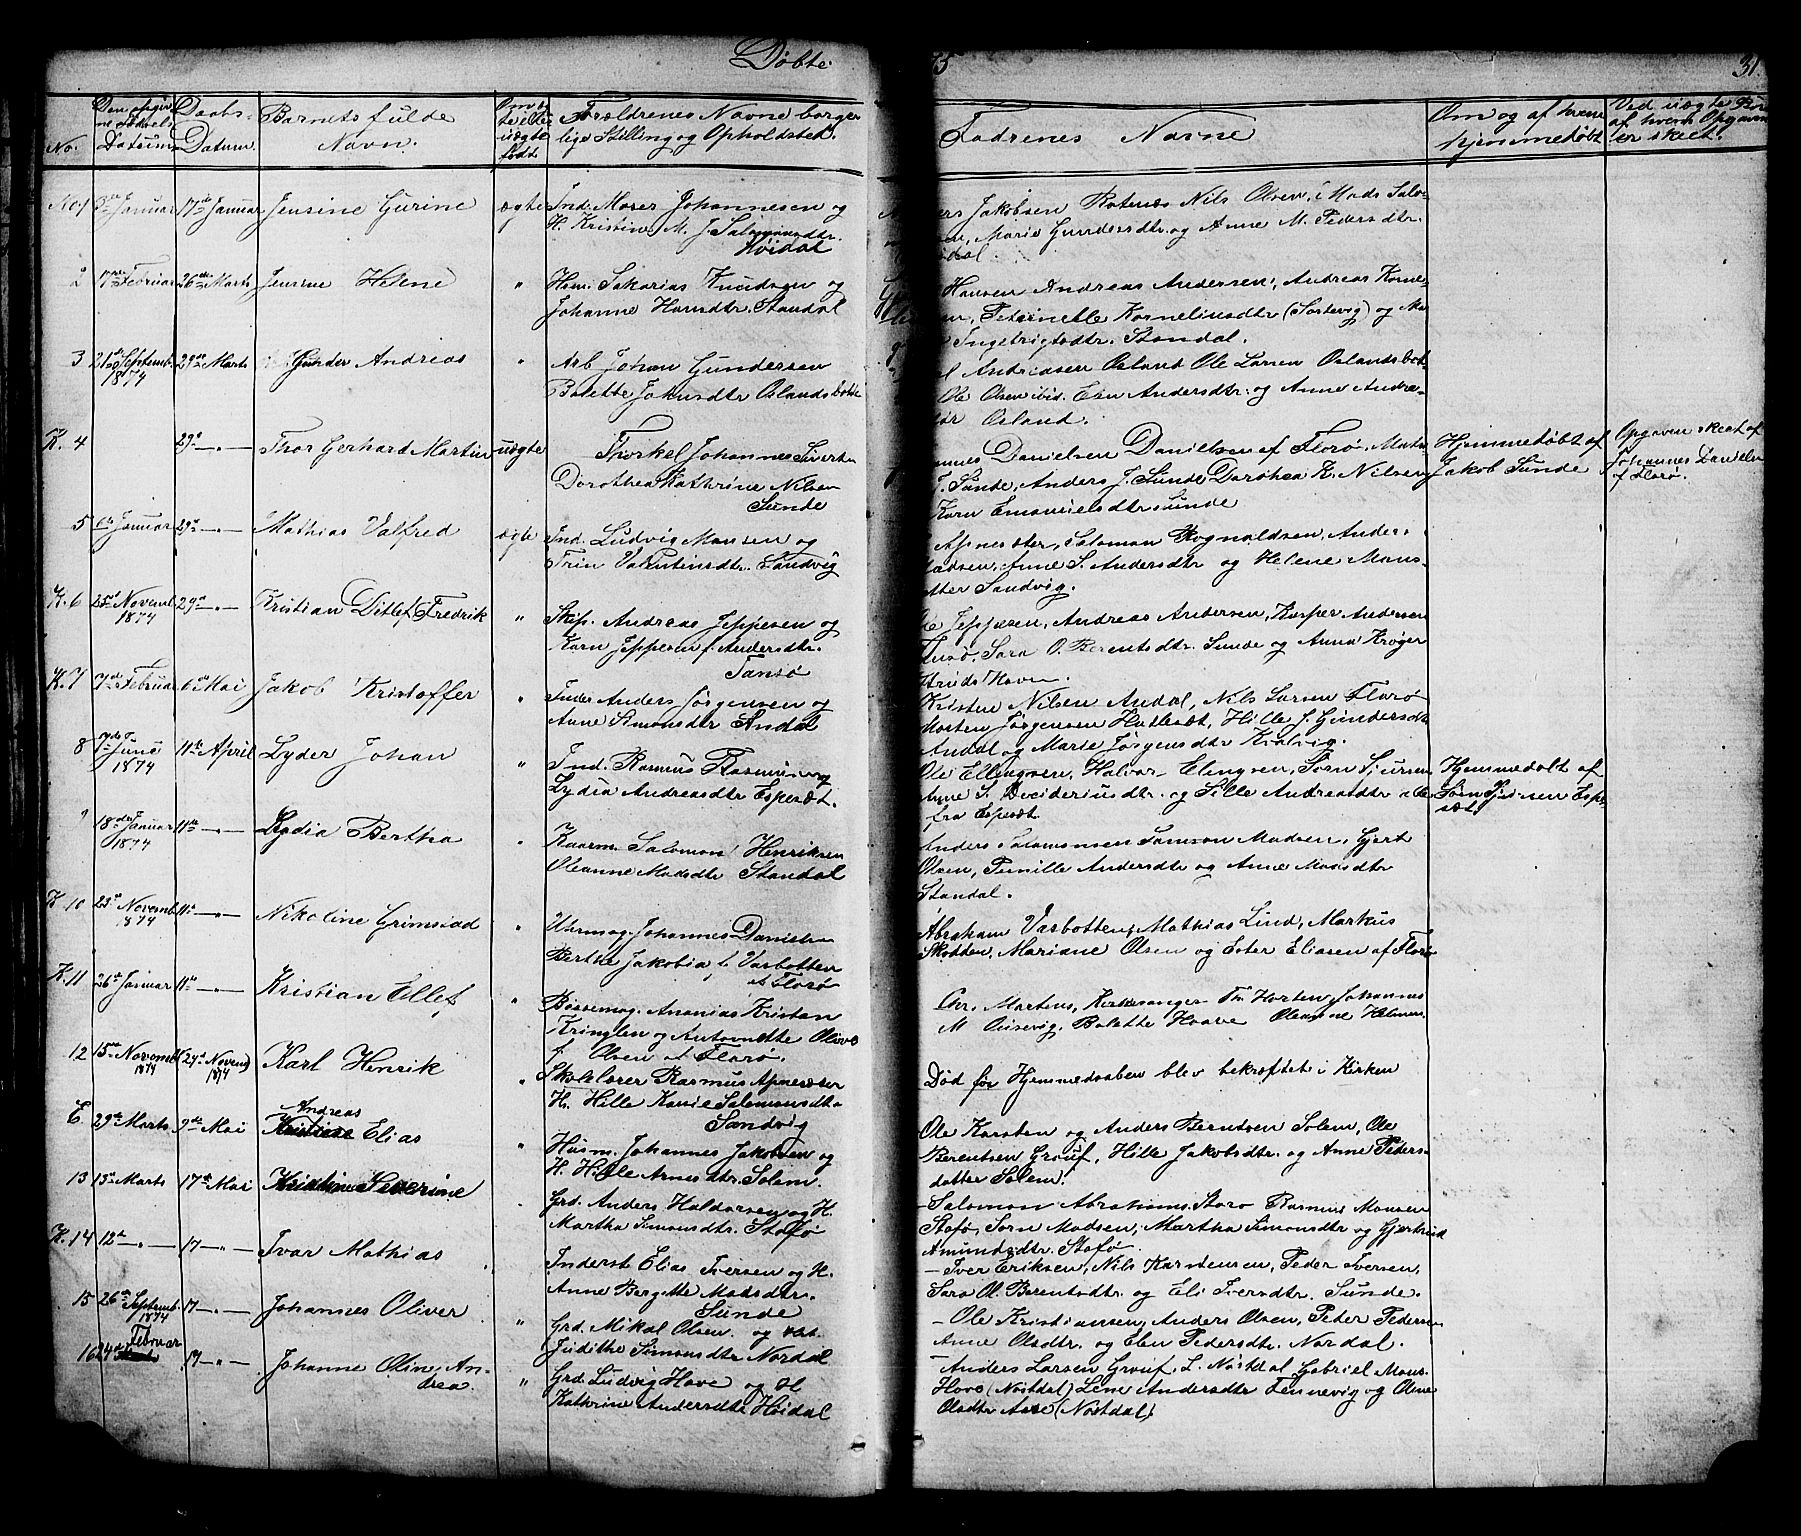 Døbte
75
31
No.
Den opgivne Fødsels Datum
Daabs-Datum
Barnets fulde Navn.
Om ægte eller uægte født
Forældrenes Navne borgerlige Stilling og Opholdsted.
Fadrenes Navne
Om og af hvem hjemmedøbt
Ved uægte Børn af hvem Opgaven er skeet.
No 1 3die Januar 17de Januar Jensine Gurine ægte Ind. Moses Johannesen og
H. Kristine M. J. Salomonsdtr.
Høidal
Jakobsen Rotenæs Nils Olsen, Mads Salo-
Marie Gundersdtr. og Anne M. Pedersdtr.
2 17de Februar 26de Marts Jensine Helene " Hsm. Sakarias Knudsen og
Johanne Hansdtr. Standal
Hansen Andreas Andersen, Andreas Korne-
Peternelle Korneliusdtr (Sortevig) og Ma
Ingebrigtsdtr. Standal.
3 21de Septemb. 1874 29de Marts Gunder Andreas " Arb Johan Gundersen
Balette Johnsdtr Oslandsbotte
Andreasen Osland Ole Larsen Oslandsbot-
Ole Olsen ibid. Elen Andersdtr. og Anne Andre-
Osland.
K. 4 29de —"— Thor Gerhard Martin uægte Thorkel Johannes Sivertsen
Dorothea Kathrine Nilsen
Sunde
Danielsen Danielsen af Florø, Mats
J. Sunde, Anders J. Sunde Dorothea K. Nilsen
Karn Emanuelsdtr Sunde
Hjemmedøbt af
Jakob Sunde
Opgaven skeet af
Johannes Daniels
af Florø.
5 6te Januar 29de —"— Mathias Valfred ægte Ind. Ludvig Monsen og
Trin Valentinsdtr. Sandvig
Salomon Rognaldsen, Anders
Madsen, Anne S. Andersdtr og Helene Mons-
datter Sandvig.
K. 6 25de Novemb 1874 29de —"— Kristian Ditlef Fredrik " Skip. Andreas Jeppesen og
Karn Jeppesen f. Andersdtr.
Tansø
Jeppesen, Andreas Andersen, Kasper Andersen
Tansø, Sara O. Berentsdtr. Sunde og Anna Krøger
Havn.
K. 7 7de Februar 6te Mai Jakob Kristoffer " Inder. Anders Jørgensen og
Anne Simonsdtr Andal
Kristen Nilsen Andal, Nils Larsen Florø
Morten Jørgensen Hatleset, Hille J. Gundersdtr
Andal og Marie Jørgensdtr Kvalvig.
8 Juni 1874 11te April Lyder Johan " Ind. Rasmus Rasmussen og
Lydia Andreasdtr Espesæt.
Ole Ellingsen, Halvar Elingsen, Sørn Sjursen
Anne S. Desideriusdtr. og Sille Andreasdtr alle
fra Espesæt
Hjemmedøbt af
Sørn Sjursen Espe-
sæt
9 18de Januar 1874 11te —"— Lydia Bertha " Kaarm. Salomon Henriksen
Oleanne Madsdtr Standal
Anders Salamonsen Samson Madsen, Gjert
Olsen, Pernille Andersdtr og Anne Madsdtr
Standal.
K. 10 23de Novemb 1874 11te —"— Nikoline Grimsiad " Uhrmag. Johannes Danielsen
Berthe Jakobia f. Varbotten
af Florø
Abraham Varbotten, Mathias Lind, Markus
Skotten, Mariane Olsen og Ester Eliasen af Florø
K. 11 26de Januar 11te —"— Kristian Ellef " Bøssemag. Ananias Kristian
Kringlen og Antonette Olive
f. Olsen af Florø.
Chr. Martens, Kirkesanger Th. Horten, Johannes
M Ousevig, Balette Haave Oleanne Helmen
12 15de Novemb 1874 (29de Novemb) 1874 Karl Henrik " Skolelærer Rasmus Apnesæter
H. Hille Karie Salomonsdtr
Sandvig
Død før Hjemmedaaben blev bekræftet i Kirken
E. 29de Marts 9de Mai Andreas
Elias " Husm. Johannes Jakobsen og
H. Hille Arnesdtr. Solem.
Ole Karsten og Anders Berntsen Solem, Ole
Berentsen Grouf, Hille Jakobsdtr. og Anne Peders-
datter Solem.
13 15de Marts 17de Mai Severine " Grd. Anders Haldorsen og H.
Martha Simonsdtr. Stafø
-Salomon Abrahams. Storø Rasmus Monsen
Stafø, Sørn Madsen, Martha Simonsdtr og Gjertrud
Amundsdtr. Stafø.
K. 14 12te —"— 17 —"— Ivar Mathias " Inderst. Elias Iversen og H.
Anne Bergitte Madsdtr.
Sunde
- Iver Eriksen, Nils Karstensen, Peder Iversen,
Sara O. Berentsdtr. og Eli Iversdtr. Sunde.
15 26de Septemb. 1874 17 —"— Johannes Oliver " Grd. Mikal Olsen og
Judithe Simonsdtr Nordal
- Ole Kristiansen, Anders Olsen, Peter Pedersen
Anne Olsdtr. og Elen Pedersdtr. Nordal.
16 24de Februar 17 —"— Johanne Oline An-
drea. " Grd. Ludvig Hove og H.
Kathrine Andersdtr Høidal
- Anders Larsen Grouf, L. Nøstdal Gabriel Mons.
Hovs (Nøstdal) Lene Andersdtr Tennevig og Oline
Olsdtr Aase (Nøstdal).